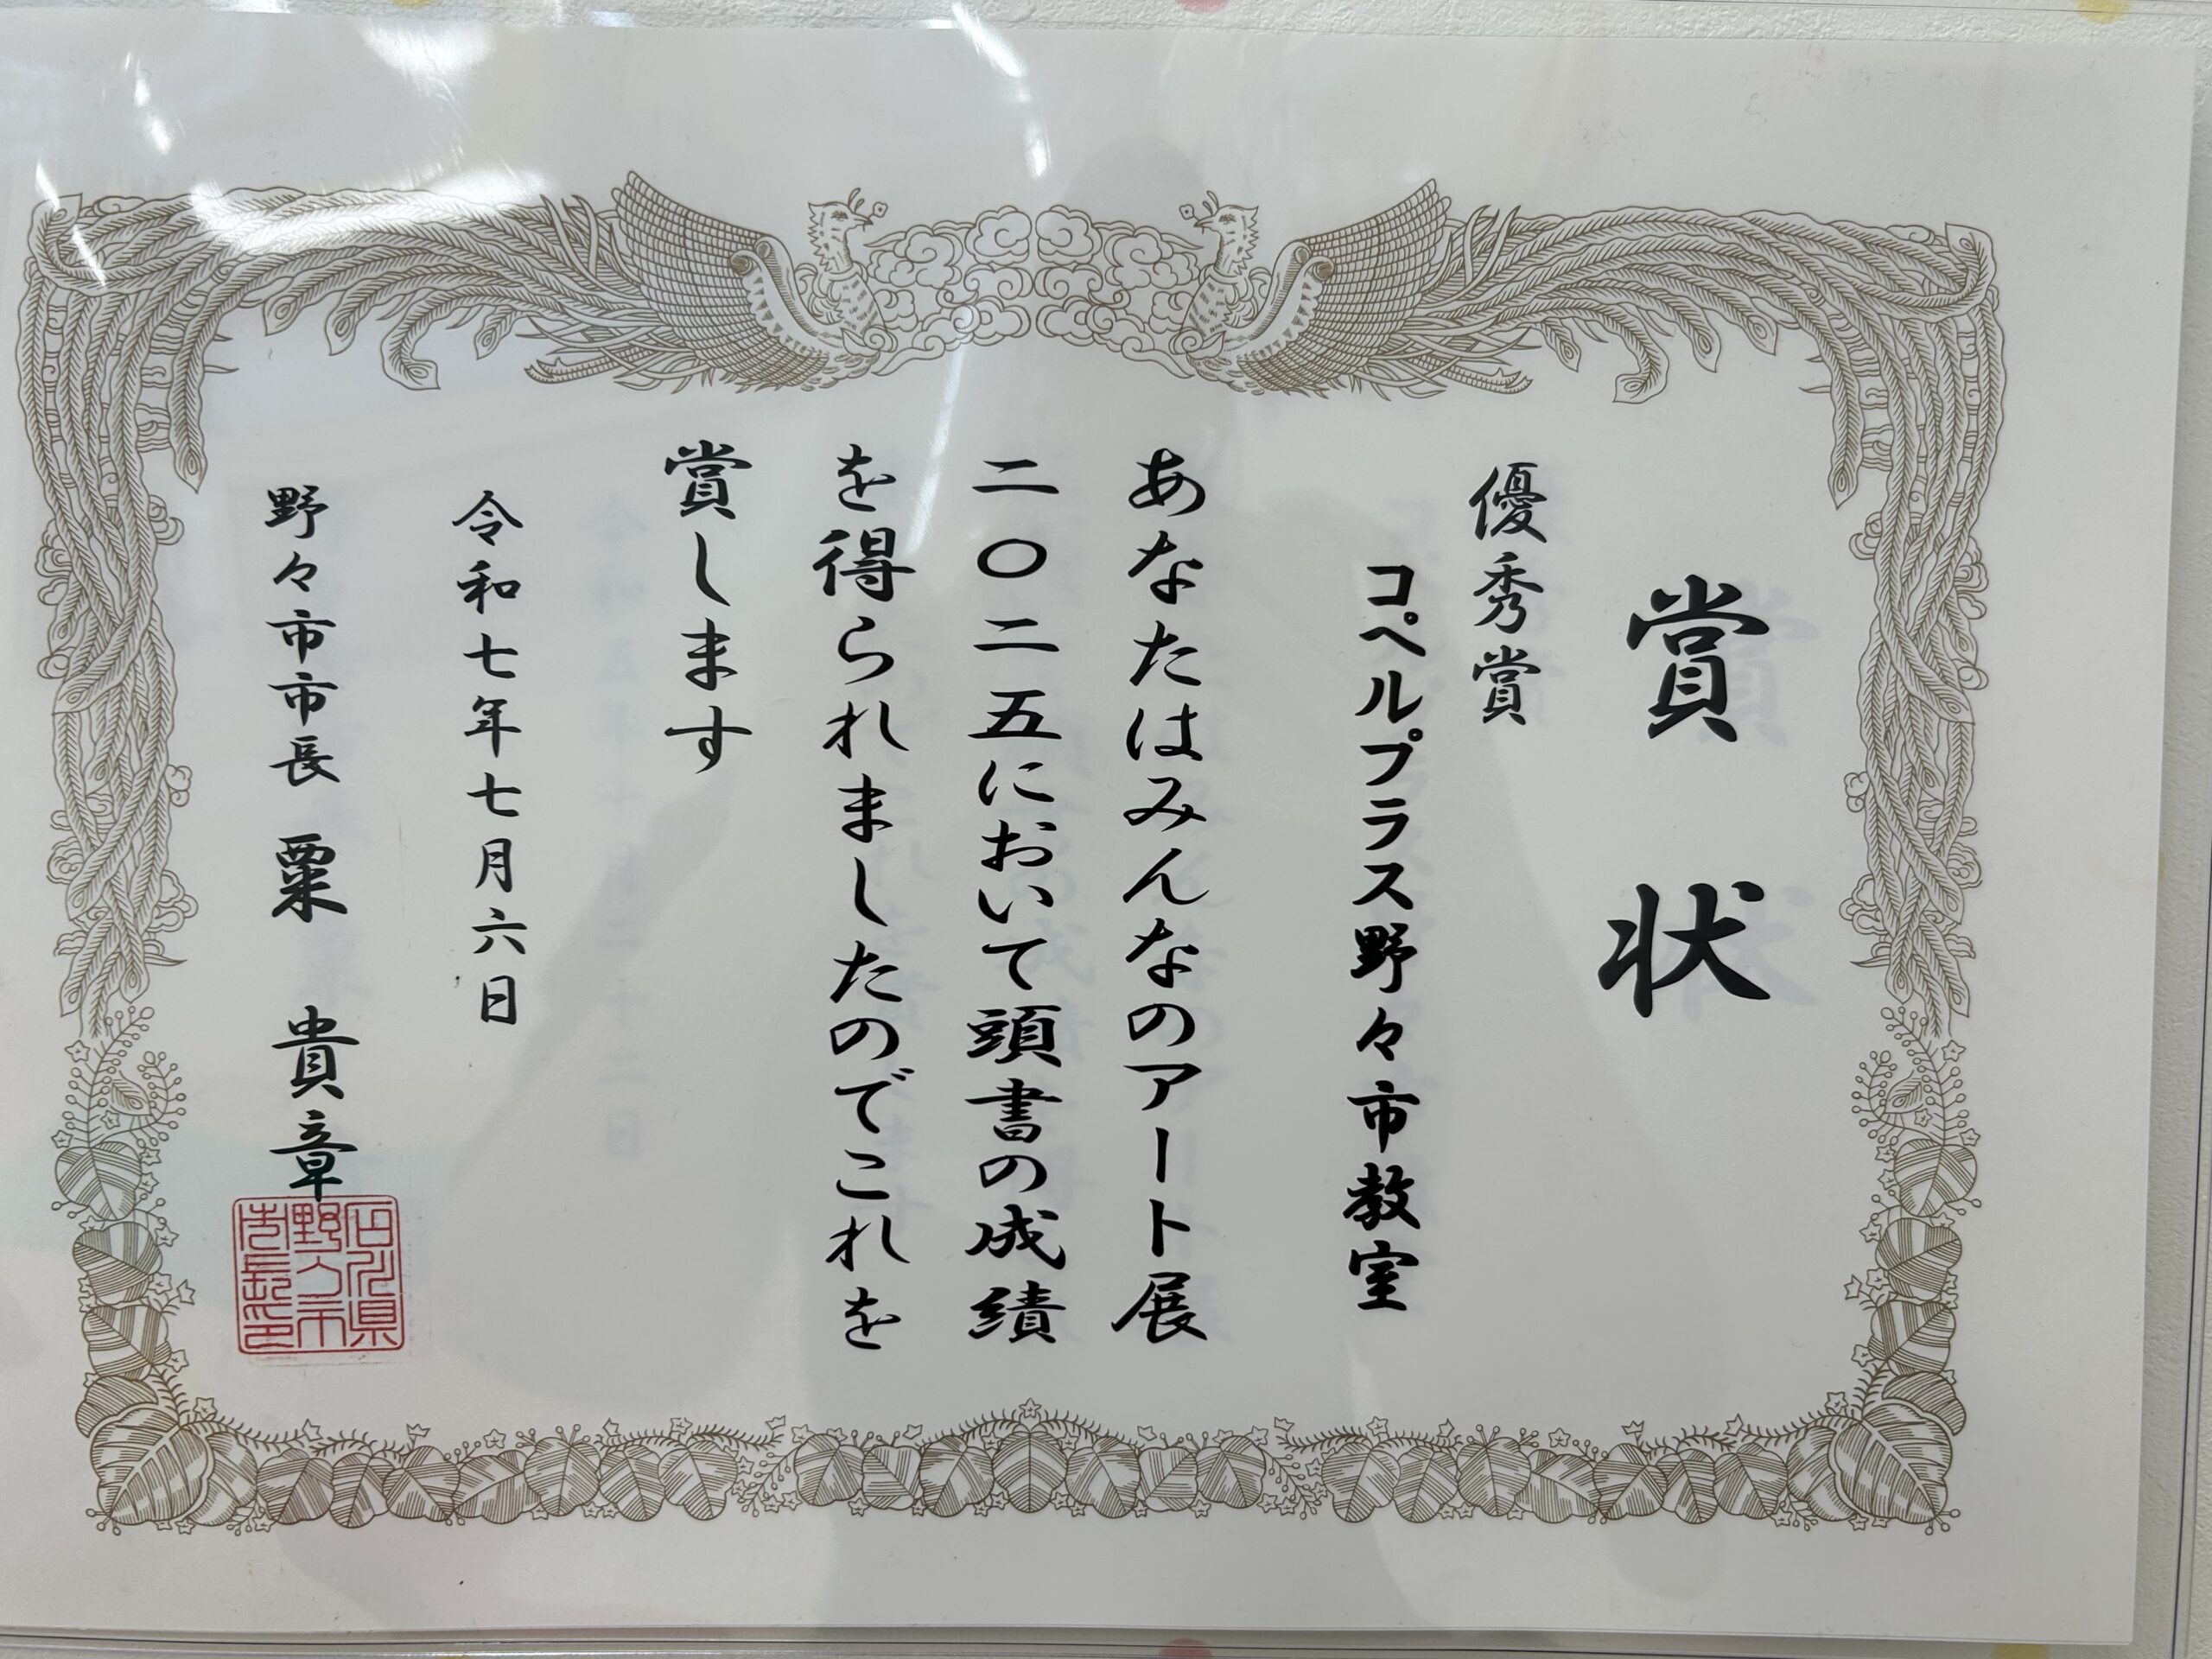 賞状
優秀賞
コペルプラス野々市教室
あなたはみんなのアート展
二〇二五において頭書の成績
を得られましたのでこれを
賞します
令和七年七月六日
野々市市長 粟 貴章
石川県
野々市
市長印